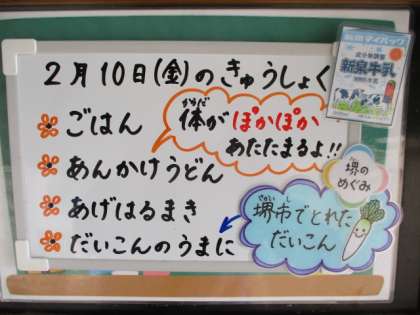 2月10日(金)のきゅうしょく
ごはん
あんかけうどん
あげはるまき
だいこんのうまに
体がぽかぽか
からだ
あたたまるよ!!
新泉牛乳
堺の
めぐみ
堺市でとれた
だいこん